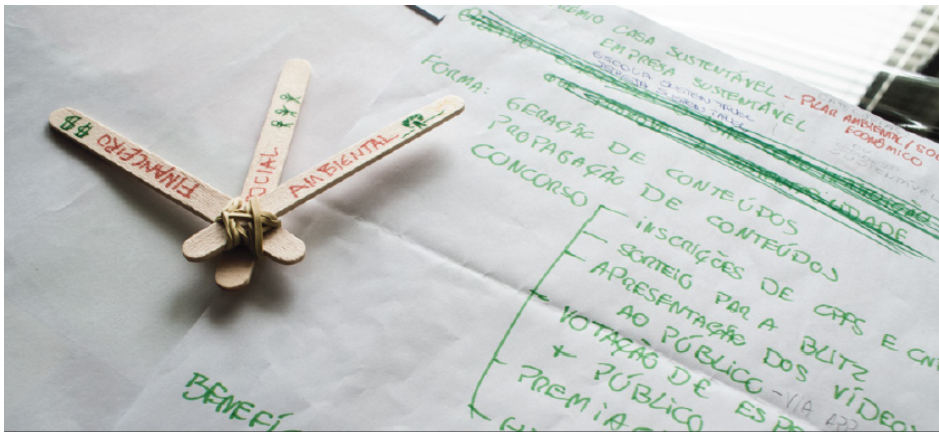 $$ FINANCEIRO
SOCIAL
AMBIENTAL
PRÊMIO CASA SUSTENTÁVEL
EMPRESA SUSTENTÁVEL
- PILAR AMBIENTAL/SOC
ECONÔMICO
ESCOLA SUSTENTÁVEL
IGREJA SUSTENTÁVEL
FORMA:
GERAÇÃO DE CONTEÚDOS
PROPAGAÇÃO DE CONTEÚDOS
CONCURSO
INSCRIÇÕES DE CPFS E CN
SORTEIO PARA BLITZ
APRESENTAÇÃO DOS VÍDEOS
AO PÚBLICO - VIA APP
VOTAÇÃO DE ESPE
+ PÚBLICO
PREMIA
BENEFÍ